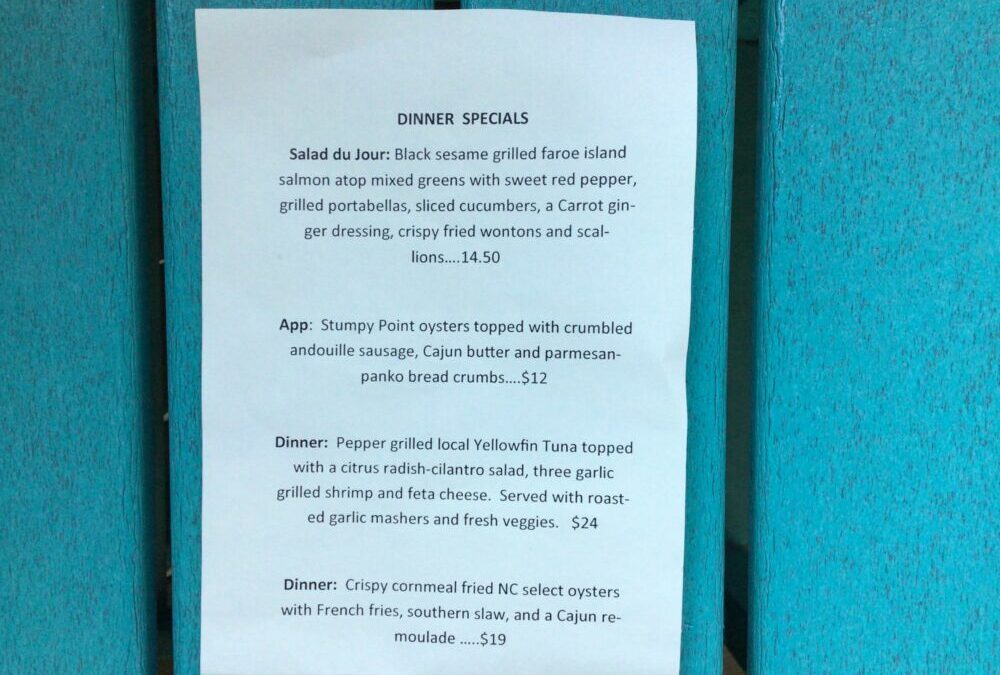 DINNER SPECIALS
Salad du Jour: Black sesame grilled faroe island
salmon atop mixed greens with sweet red pepper,
grilled portabellas, sliced cucumbers, a Carrot gin-
ger dressing, crispy fried wontons and scal-
lions....14.50
App: Stumpy Point oysters topped with crumbled
andouille sausage, Cajun butter and parmesan-
panko bread crumbs....$12
Dinner: Pepper grilled local Yellowfin Tuna topped
with a citrus radish-cilantro salad, three garlic
grilled shrimp and feta cheese. Served with roast-
ed garlic mashers and fresh veggies. $24
Dinner: Crispy cornmeal fried NC select oysters
with French fries, southern slaw, and a Cajun re-
moulade .....$19